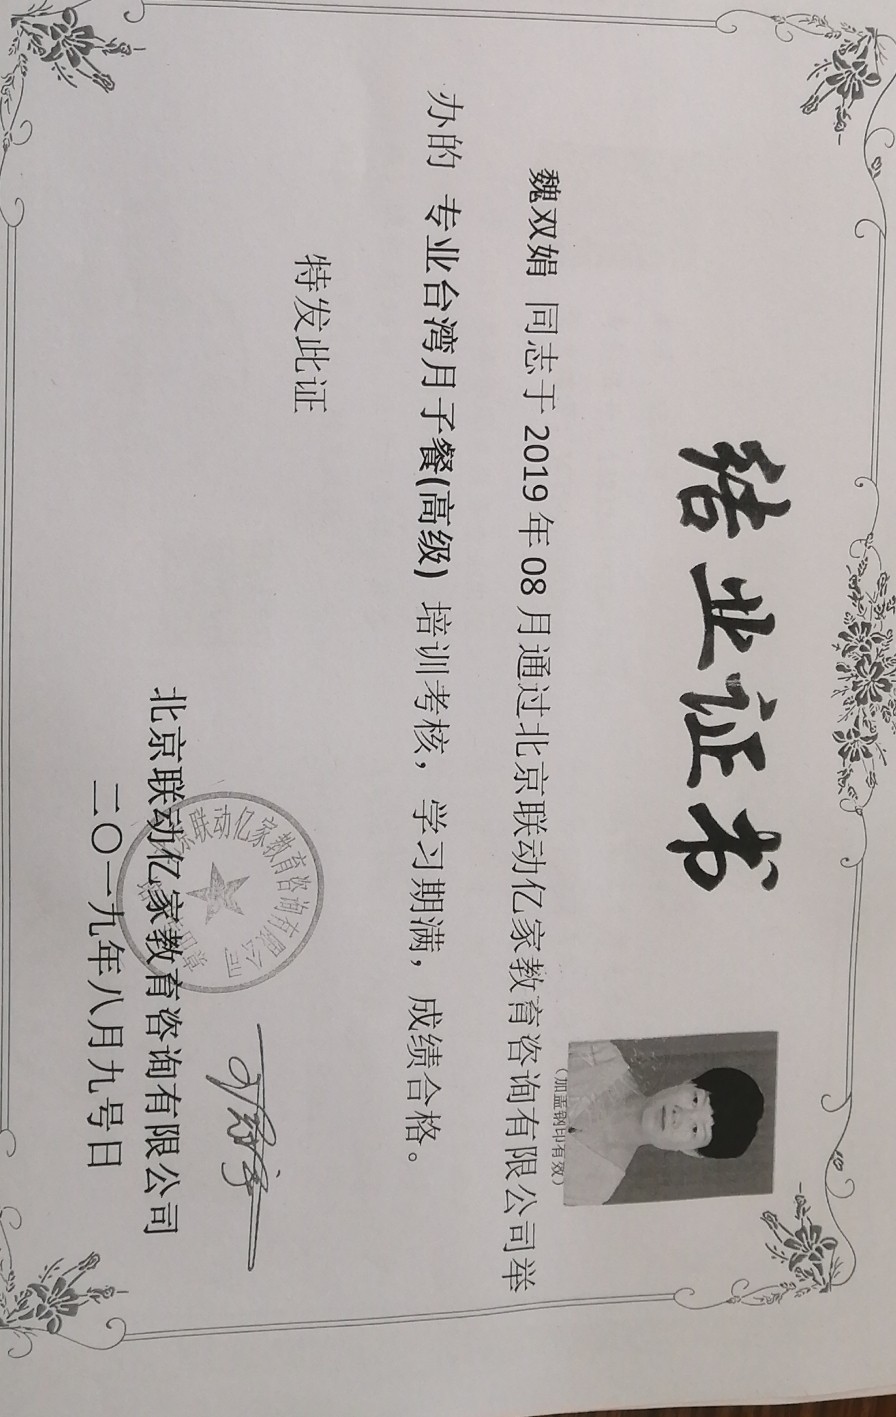 结业证书
(加盖钢印有效)
魏双娟 同志于 2019 年 08 月通过北京联动亿家教育咨询有限公司举
办的 专业台湾月子餐(高级) 培训考核，学习期满，成绩合格。
特发此证
京联动亿家教育咨询有限公司
北京联动亿家教育咨询有限公司
二〇一九年八月九号日